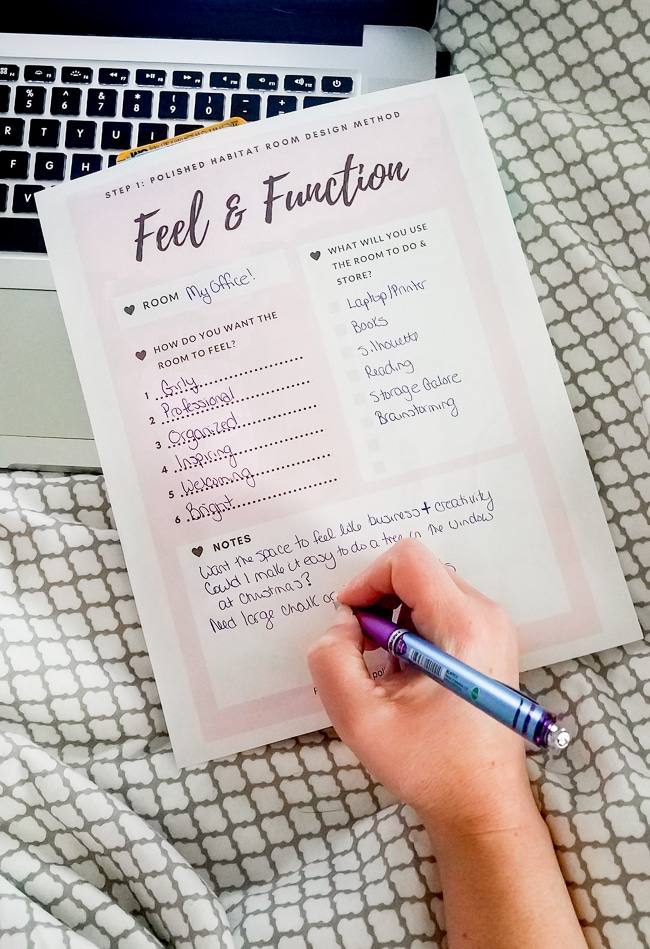 STEP 1: POLISHED HABITAT ROOM DESIGN METHOD
Feel & Function
ROOM My Office!
HOW DO YOU WANT THE
ROOM TO FEEL?
1 Girly
2 Professional
3 Organized
4 Inspiring
5 Welcoming
6 Bright
WHAT WILL YOU USE
THE ROOM TO DO &
STORE?
Laptop/Printer
Books
Silhouette
Reading
Storage Galore
Brainstorming
NOTES
Want the space to feel like business + creativity
Could I make it easy to do a tree in the window
at Christmas?
Need large chalk or
% 5 ^ 6 & 7 * 8 ( 9 ) 0 - + =
R T Y U I
F G H
V